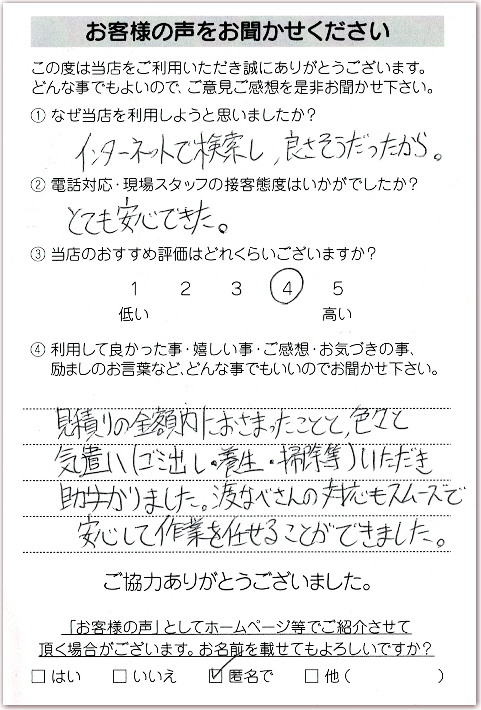 お客様の声をお聞かせください
この度は当店をご利用いただき誠にありがとうございます。
どんな事でもよいので、ご意見ご感想を是非お聞かせ下さい。
① なぜ当店を利用しようと思いましたか？
インターネットで検索し、良さそうだったから。
② 電話対応・現場スタッフの接客態度はいかがでしたか？
とても安心できた。
③ 当店のおすすめ評価はどれくらいございますか？
1 2 3 4 5
低い 高い
④ 利用して良かった事・嬉しい事・ご感想・お気づきの事、
励ましのお言葉など、どんな事でもいいのでお聞かせ下さい。
見積りの金額内におさまったことと、色々と
気遣い(ゴミ出し・養生・掃除等)いただき
助かりました。渡なべさんの対応もスムーズで
安心して作業を任せることができました。
ご協力ありがとうございました。
「お客様の声」としてホームページ等でご紹介させて
頂く場合がございます。お名前を載せてもよろしいですか？
□ はい □ いいえ ☑ 匿名で □ 他( )